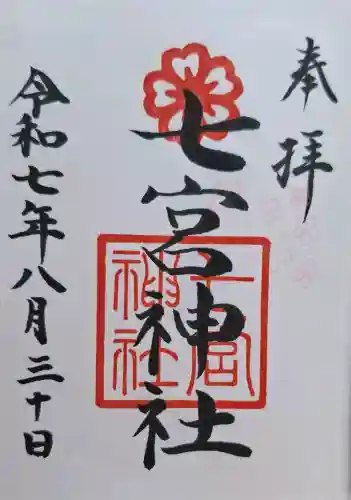 奉拝
七宮神社
七宮神社
令和七年八月三十日